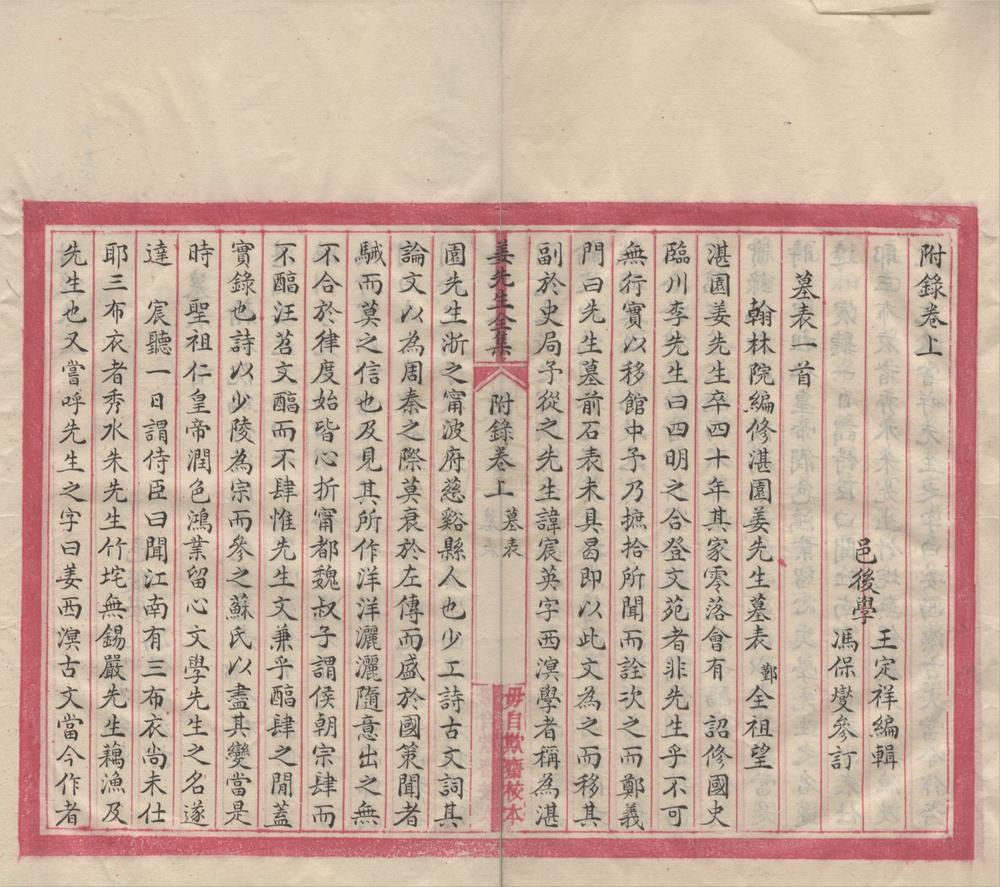 附錄卷上
邑後學
王定祥編輯
馮保燮參訂
墓表一首
翰林院編修湛園姜先生墓表 鄞全祖望
湛園姜先生卒四十年其家零落會有 詔修國史
臨川李先生曰四明之合登文苑者非先生乎不可
無行實以移館中予乃摭拾所聞而詮次之而鄭義
門曰先生墓前石表未具曷即以此文為之而移其
副於史局予從之先生諱宸英字西溟學者稱為湛
姜先生全集
附錄卷上
墓表
毋自欺齋校本
園先生浙之甯波府慈谿縣人也少工詩古文詞其
論文以為周秦之際莫衰於左傳而盛於國策聞者
駴而莫之信也及見其所作洋洋灑灑隨意出之無
不合於律度始皆心折甯都魏叔子謂侯朝宗肆而
不醕汪苕文醕而不肆惟先生文兼乎醕肆之閒蓋
實錄也詩以少陵為宗而參之蘇氏以盡其變當是
時 聖祖仁皇帝潤色鴻業留心文學先生之名遂
達 宸聽一日謂侍臣曰聞江南有三布衣尚未仕
耶三布衣者秀水朱先生竹垞無錫嚴先生藕漁及
先生也又嘗呼先生之字曰姜西溟古文當今作者